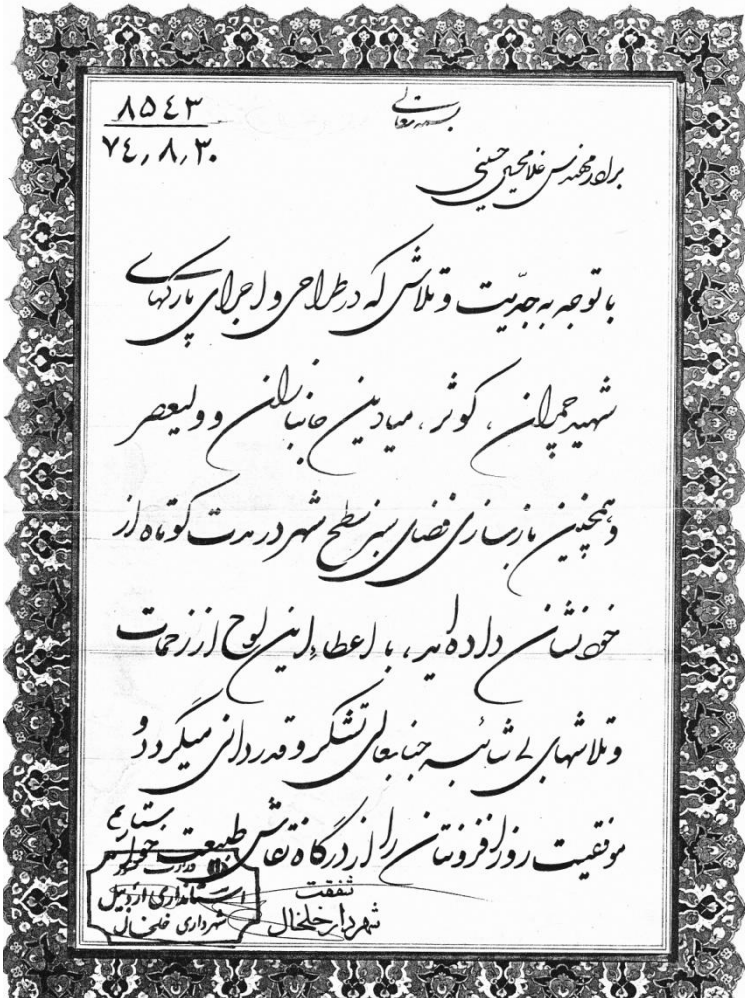 بسمه تعالی
۸۵۴۳
۷۴٫۸٫۳۰
برادر مهندس غلامیحیی حسینی
با توجه به جدّیت و تلاشی که در طراحی و اجرای پارکهای
شهید چمران ، کوثر ، میادین جانبازان و ولیعصر
و همچنین بازسازی فضای سبز سطح شهر در مدت کوتاه از
خود نشان داده اید ، با اعطاء این لوح از زحمات
و تلاشهای بی شائبه جنابعالی تشکر و قدردانی میگردد و
موفقیت روز افزونتان را از درگاه نقاش طبیعت خواستاریم
شفقت
شهردار خلخال
وزارت کشور
استانداری اردبیل
شهرداری خلخال